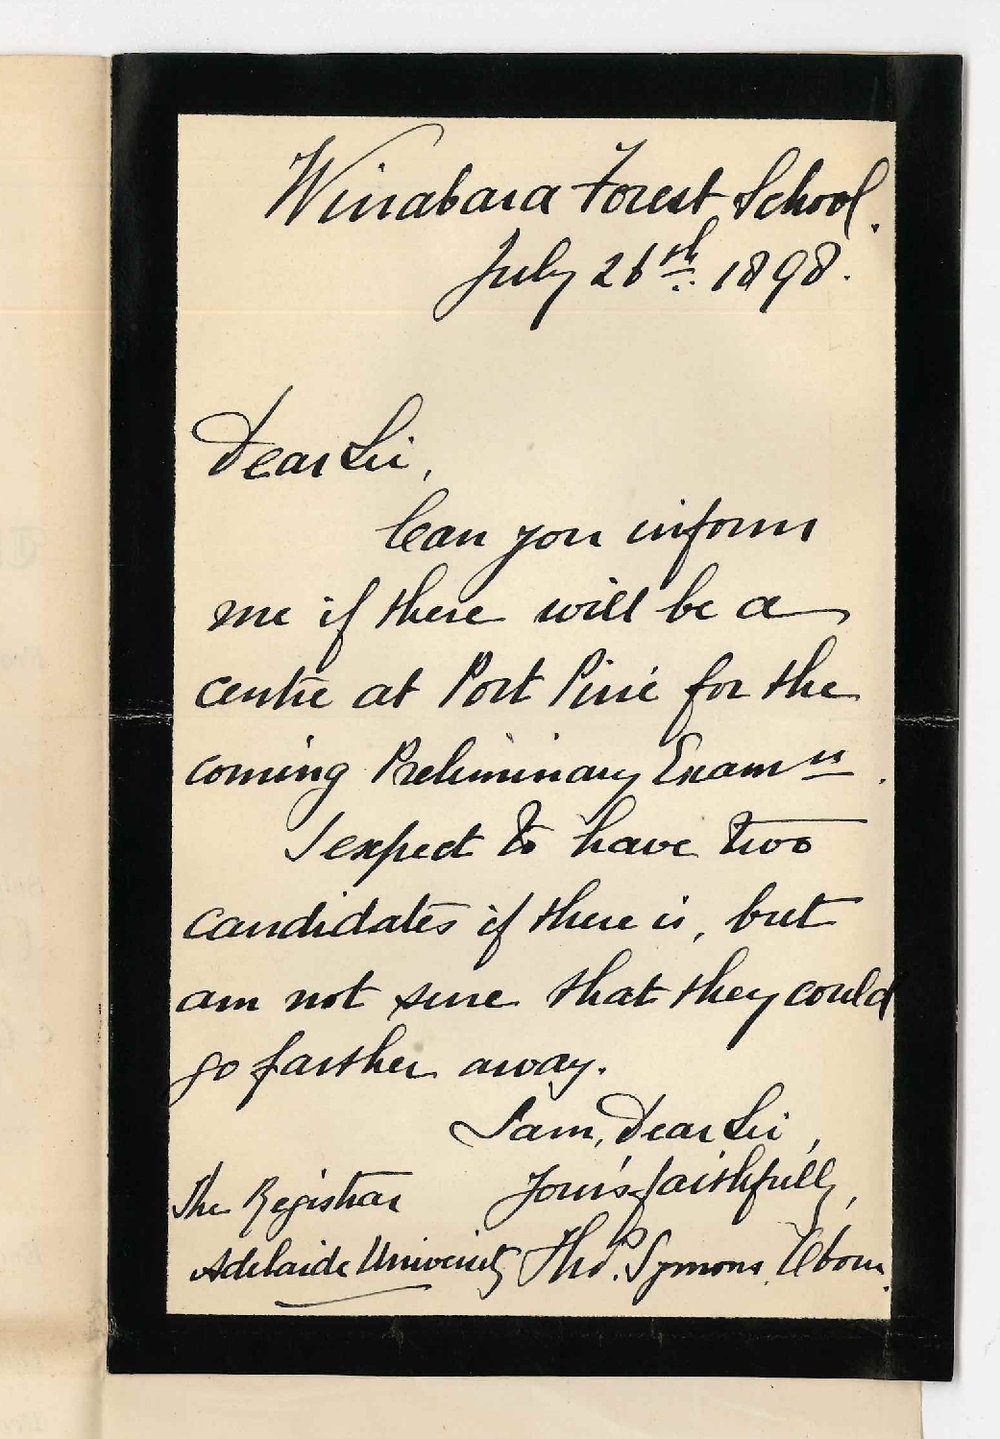 Wirrabara Forest School.
July 26th. 1898.
Dear Sir,
Can you inform
me if there will be a
centre at Port Pirie for the
coming Preliminary Examn.
I expect to have two
candidates if there is, but
am not sure that they could
go farther away.
I am, Dear Sir,
Yours faithfully,
The Registrar
Adelaide University
Thos. Symons